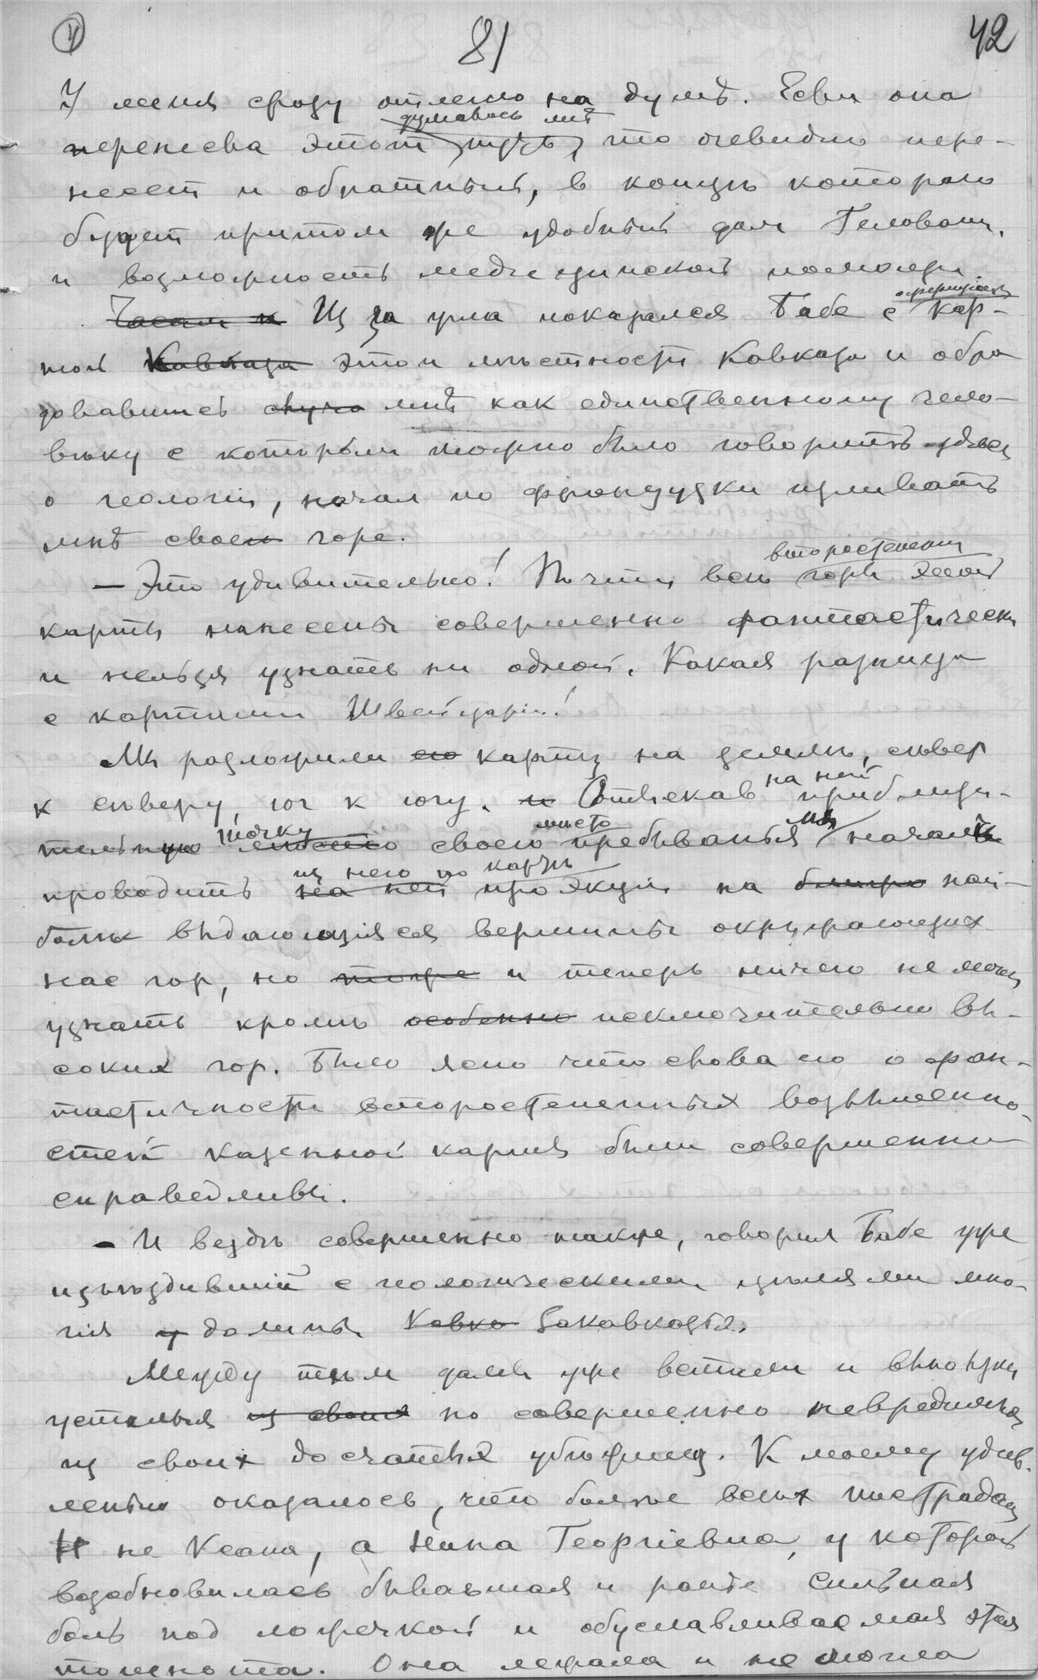 4 81 42
У меня сразу отлегло на душѣ. Если она
думалось мнѣ
перенесла этот путь, то очевидно пере-
несет и обратный, в концѣ котораго
будет притом же удобный дом Геловани,
и возможность медицинской помощи.
Часам к Из за угла показался Бабе с офицерской кар-
той Кавказа этой мѣстности Кавказа и обра
довавшись мнѣ как единственному чело-
вѣку с которым можно было говорить здѣсь
о геологіи, начал по французски изливать
мнѣ свое горе.
второстепенныя
— Это удивительно! Почти всѣ горы этой
карты нанесены совершенно фантастически
и нельзя узнать ни одной. Какая разница
с картами Швейцаріи!
Мы разложили его карту на землѣ, сѣвер
к сѣверу, юг к югу. и Отыскав на ней приблизи-
тельную точку мѣсто своего пребыванья мы начали
проводить на ней из него по картѣ проэкціи на близко наи-
болѣе выдающіяся вершины окружающих
нас гор, но тоже и теперь ничего не могли
узнать кромѣ особенно исключительно вы-
соких гор. Было ясно что слова его о фан-
тастичности второстепенных возвышенно-
стей казенной карты были совершенно
справедливы.
— И вездѣ совершенно также, говорил Бабе уже
изъѣздившій с геологическими цѣлями мно-
гія долины Кавка Закавказья.
Между тѣм дамы уже встали и выползли
усталыя из своих но совершенно невредимыя
из своих досчатых убѣжищ. К моему удив-
ленью оказалось, что болѣе всѣх пострадала
не Ксана, а Нина Георгіевна, у которой
возобновилась бывавшая и ранѣе сильная
боль под ложечкой и обуславливаемая этим
тошнота. Она лежала и не могла